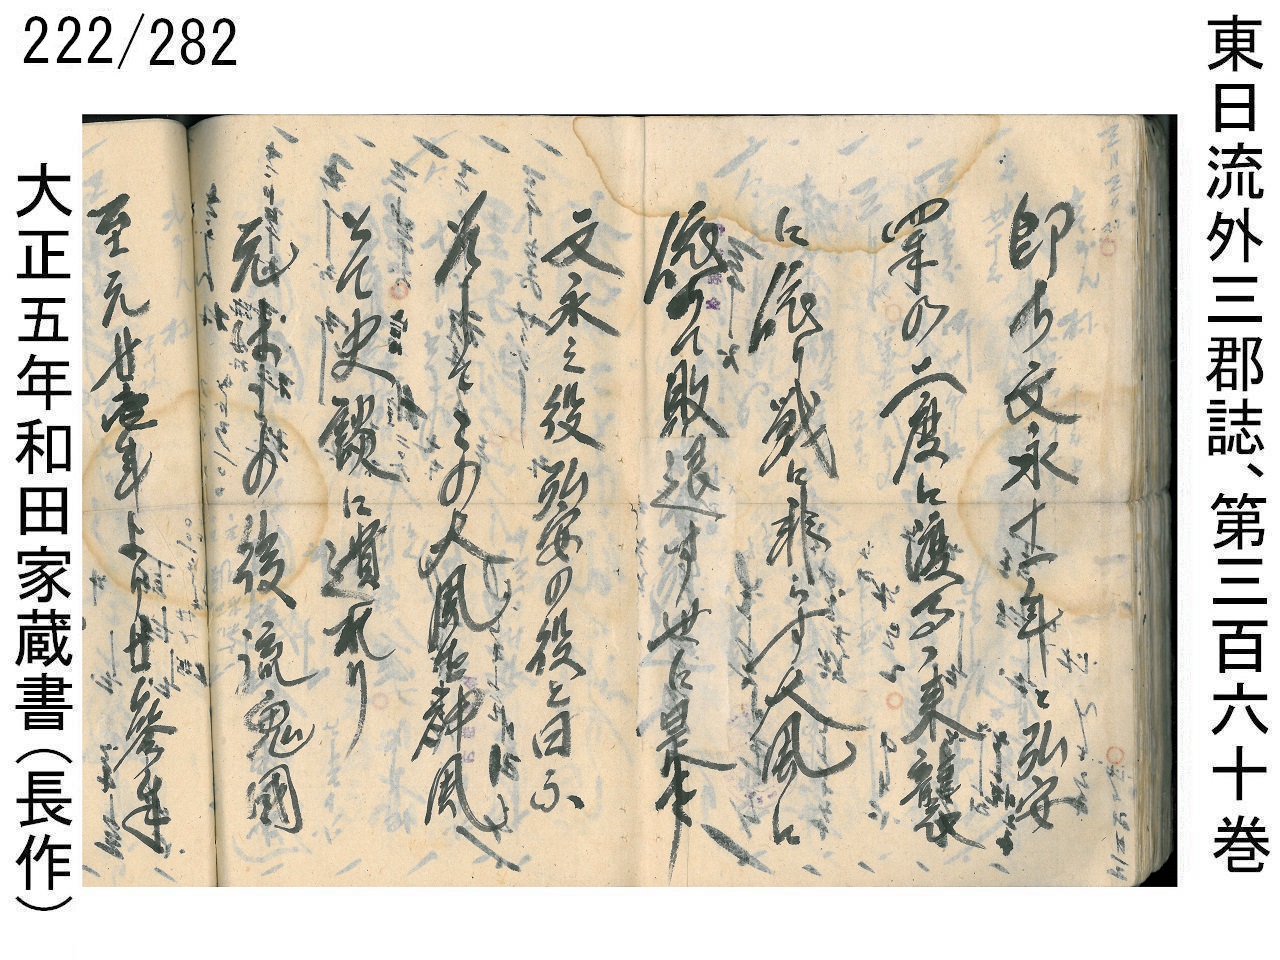 222/282
東日流外三郡誌、第三百六十巻
即ち文永十一年と弘安
四年の二度に渡る来襲
に依り戦に非らず大風に
依りて敗退す世に是を
文永之役弘安の役と曰ふ
亦その大風を神風
とて史談に遺れり
元はその後流鬼國
至元廿壱年より廿参年
大正五年和田家蔵書(長作)